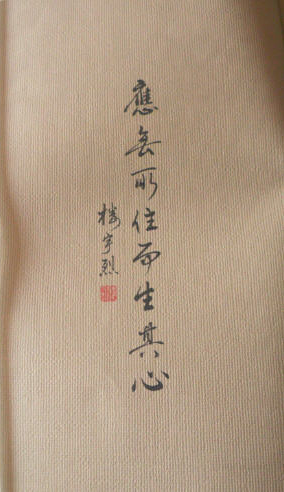 應無所住而生其心
楼宇烈